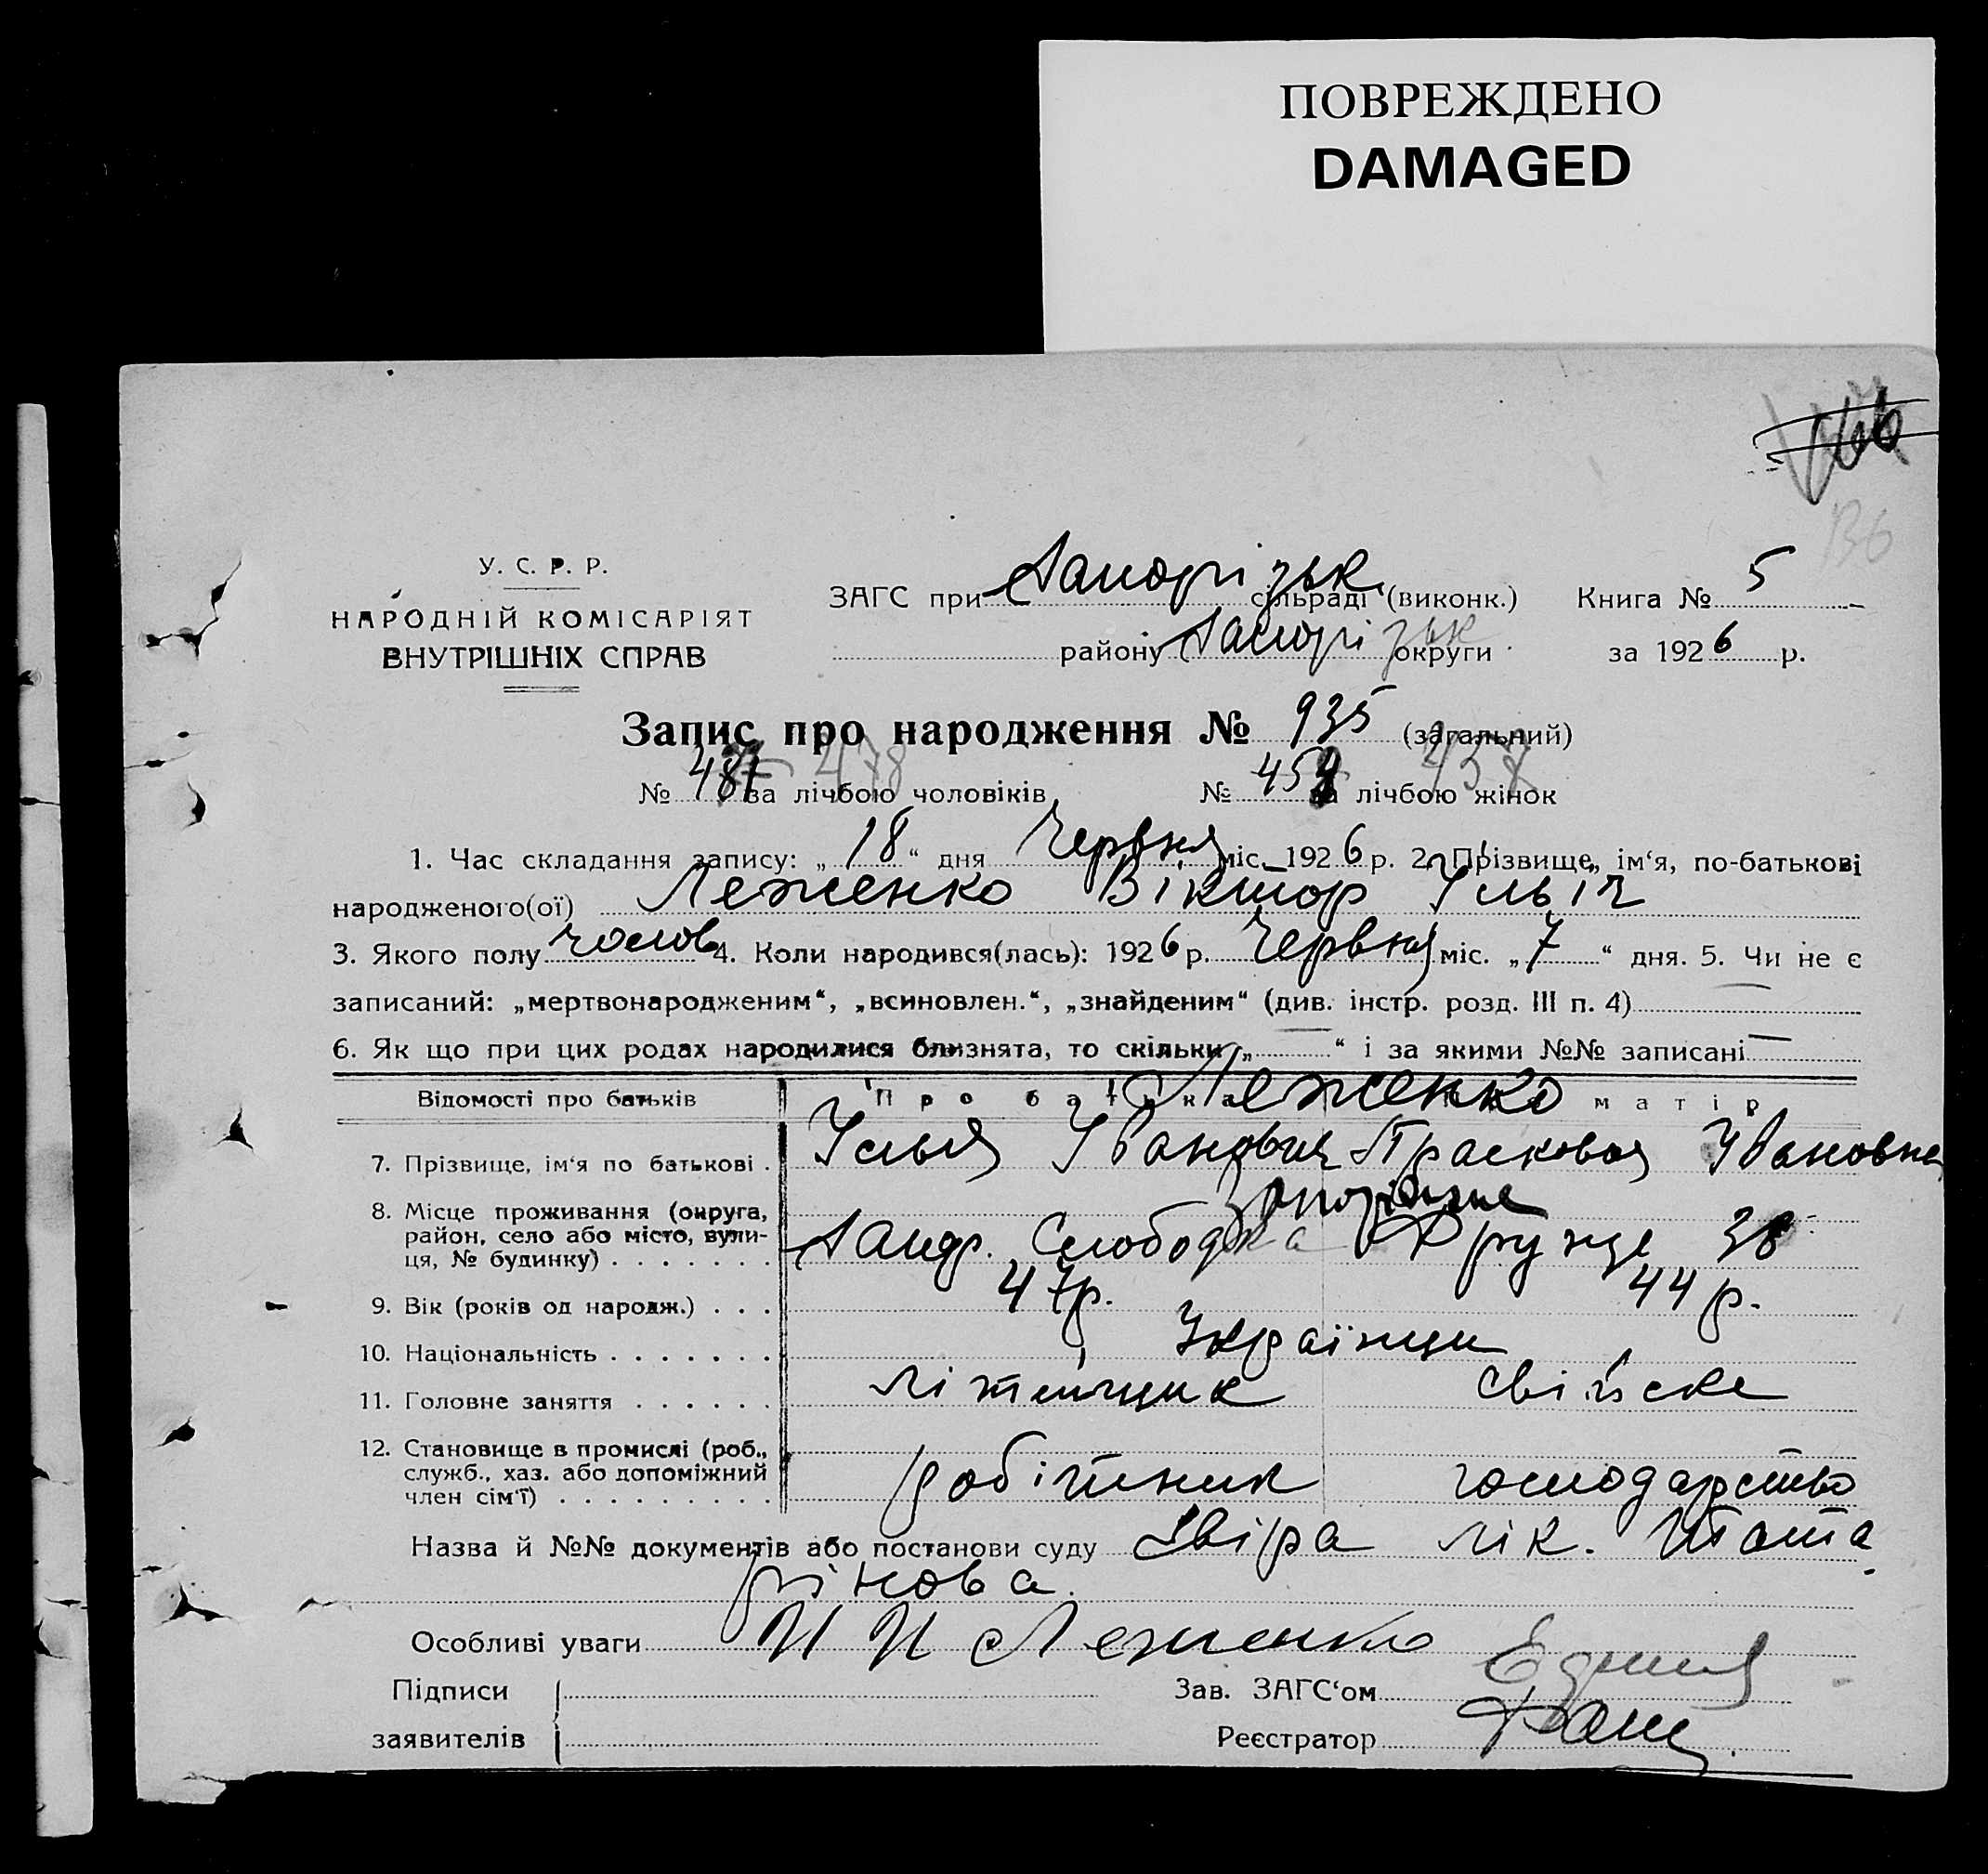 ПОВРЕЖДЕНО
DAMAGED
136
У. С. Р. Р.
НАРОДНІЙ КОМІСАРІЯТ
ВНУТРІШНІХ СПРАВ
ЗАГС при Запорізьк сільраді (виконк.) Книга № 5
району Запорізьк округи за 1926 р.
Запис про народження № 935 (загальний)
№ 487 478 за лічбою чоловіків № 458 457 за лічбою жінок
1. Час складання запису: „18“ дня Червня міс. 1926 р. 2. Прізвище, ім‘я, по-батькові
народженого(ої) Леженко Віктор Ільіч
3. Якого полу чолов 4. Коли народився(лась): 1926 р. Червня міс. „7“ дня. 5. Чи не є
записаний: „мертвонародженим“, „всиновлен.“, „знайденим“ (див. інстр. розд. III п. 4)
6. Як що при цих родах народилися близнята, то скільки „—“ і за якими №№ записані —
Відомості про батьків Про батька матір
Леженко
7. Прізвище, ім‘я по батькові . Ілья Іванович Прасковья Івановна
Запоріжже
8. Місце проживання (округа, район, село або місто, вулиця, № будинку) . . . . . . . Слободка Фрунзе 38
9. Вік (років од народж.) . . . 47 р. 44 р.
10. Національність . . . . . . . Українци
11. Головне заняття . . . . . . Літейщик свійске
12. Становище в промислі (роб., служб., хаз. або допоміжний член сім‘ї) . . . . . . . . . робітник господарство
Назва й №№ документів або постанови суду лік.
Особливі уваги И И Леженко
Підписи
заявителів
Зав. ЗАГС‘ом
Реєстратор